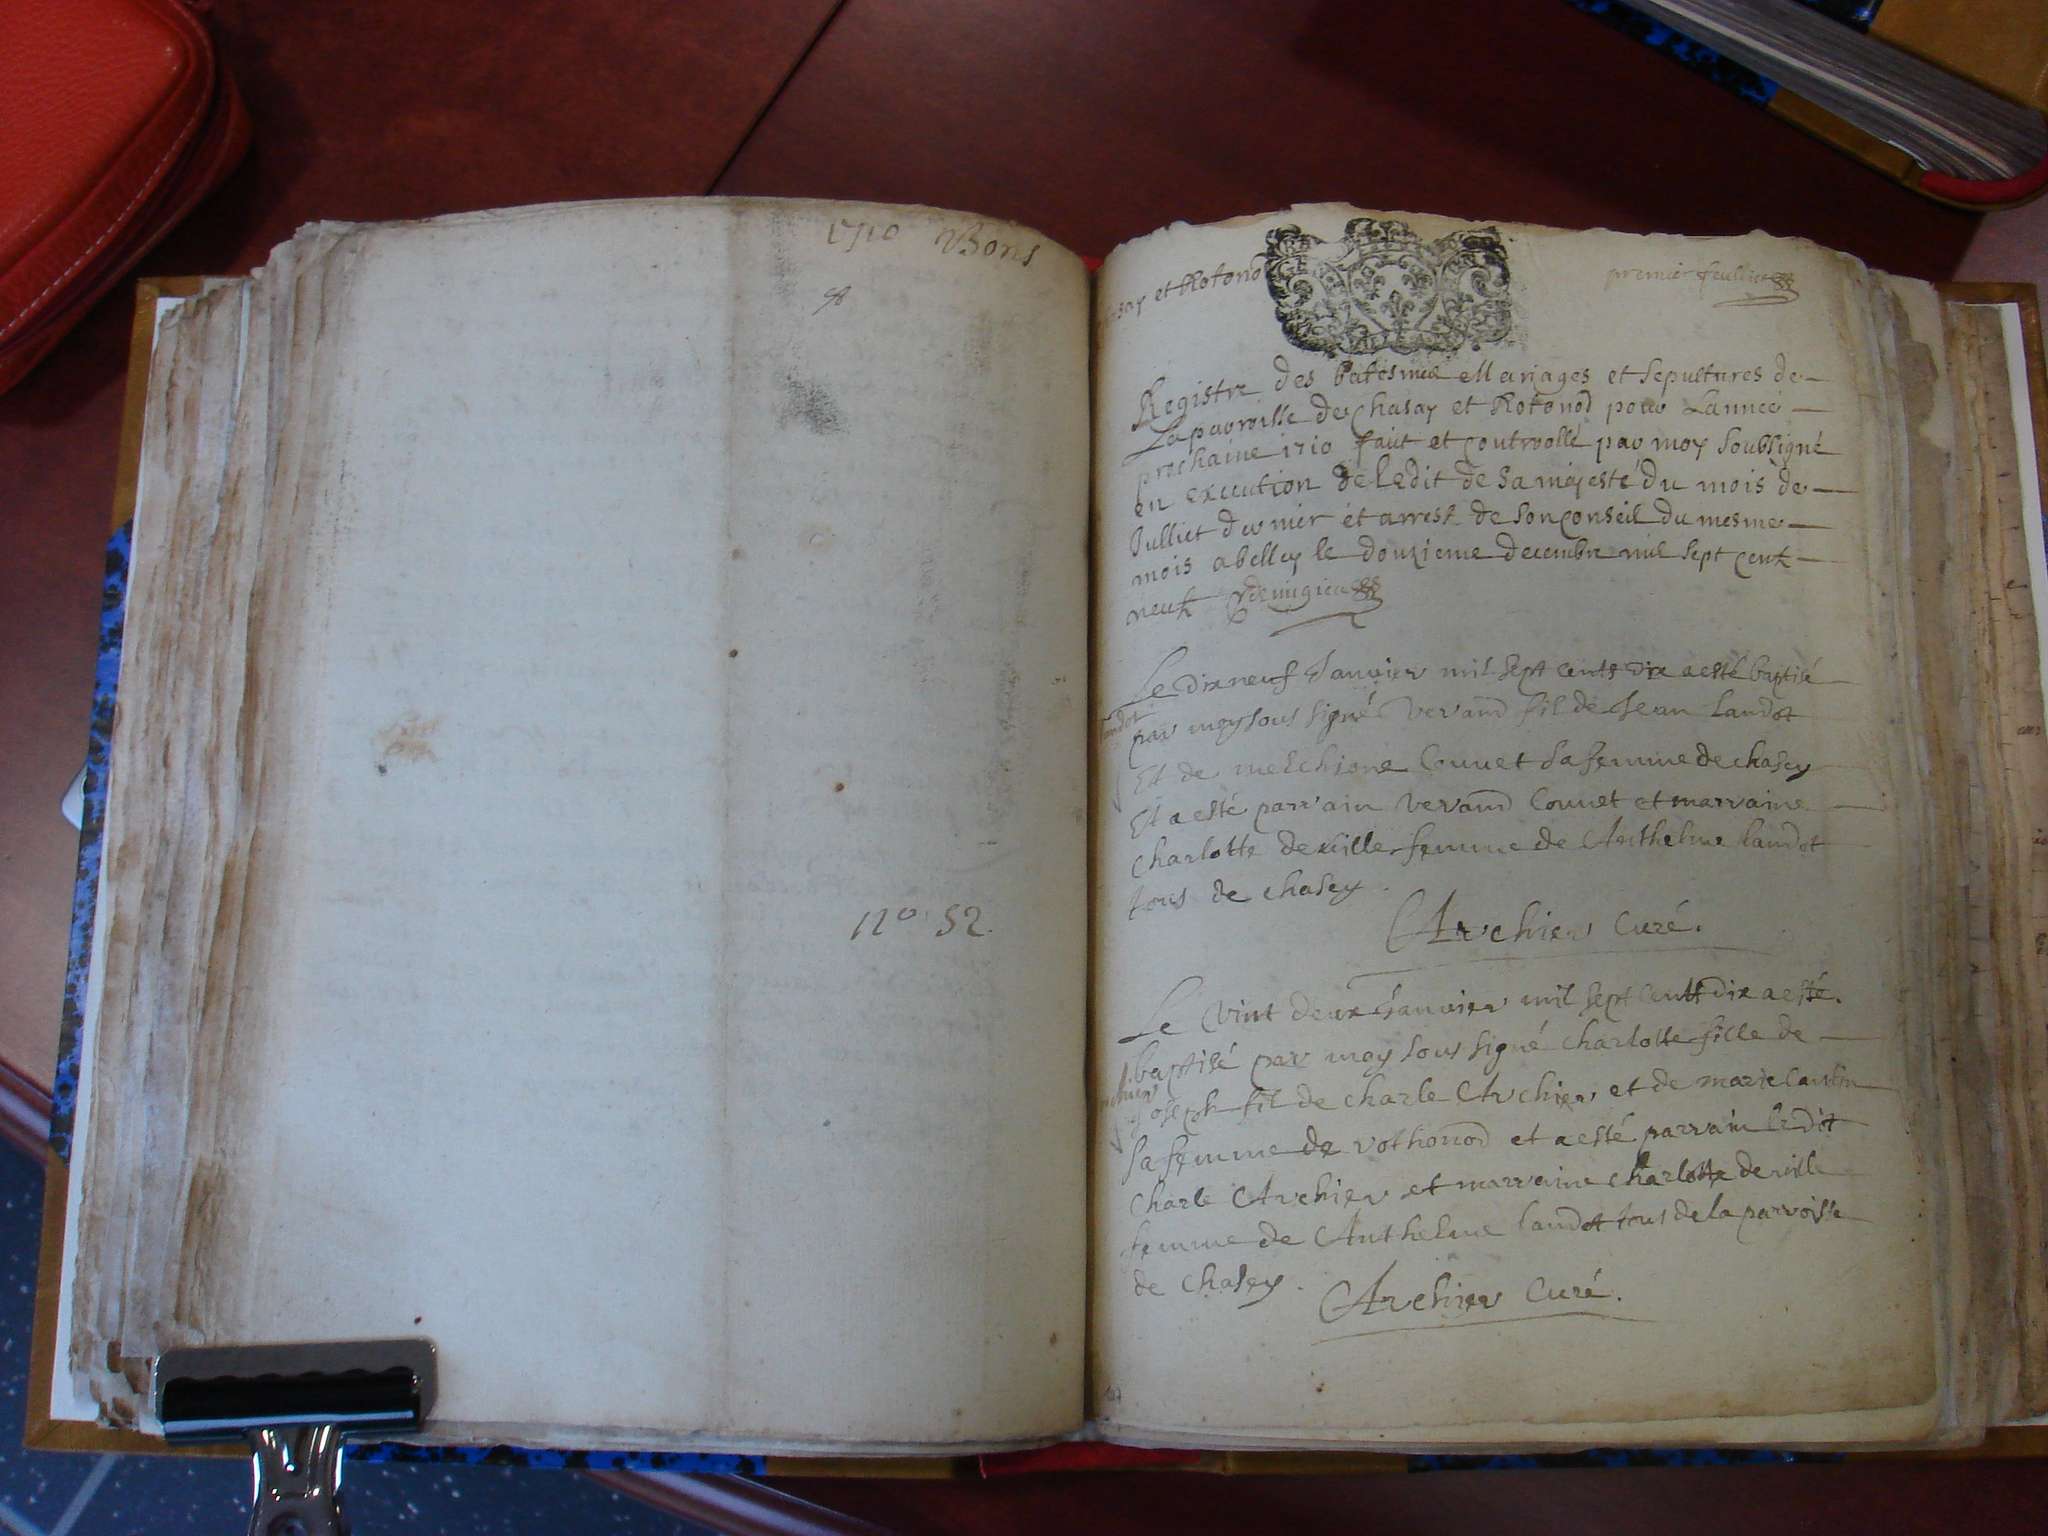 1710 Bons
N° 52.
et Rotonod
premier feuillet
Registre des Batesmes Mariages et sepultures de
La parroisse de Chasay et Rotonod pour Lannee
prochaine 1710 faict et controollé par moy soubsigné
en execution de Ledit de sa majesté du mois de
Julliet dernier et arrest de son conseil du mesme
mois a belley le douzieme decembre mil sept cent
neuf Demigieu
Le dix neuf Janvier mil sept cents dix a esté baptisé
par moy sous signé Verand fil de Jean Landot
Et de melchione Couuet sa femme de chasey
Et a esté parrain Verand Couuet et marraine
charlotte deville femme de Anthelme landot
tous de chasey.
Archier Curé.
Le vint deux Janvier mil sept cents dix a esté
baptisé par moy sous signé charlotte fille de
Joseph fil de charle Archier et de marie
sa femme de rothonod et a esté parrain ledit
charle Archier et marraine charlotte deville
femme de Anthelme landot tous de la parroisse
de chasey.
Archier Curé.